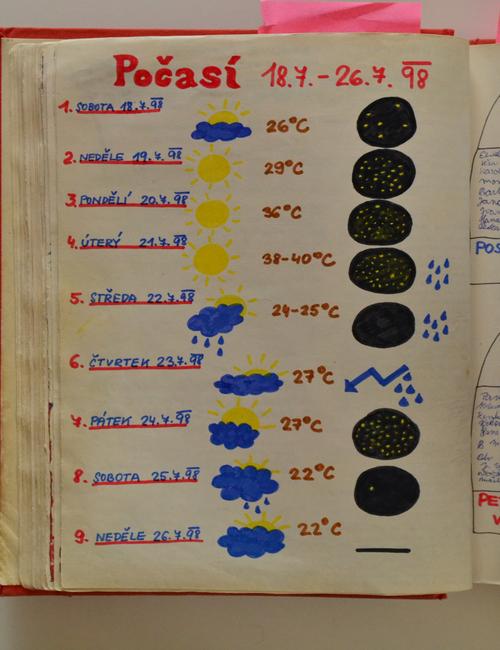 Počasí 18.7. - 26.7. 98
1. SOBOTA 18.7.98 26°C
2. NEDĚLE 19.7.98 29°C
3. PONDĚLÍ 20.7.98 36°C
4. ÚTERÝ 21.7.98 38-40°C
5. STŘEDA 22.7.98 24-25°C
6. ČTVRTEK 23.7.98 27°C
7. PÁTEK 24.7.98 27°C
8. SOBOTA 25.7.98 22°C
9. NEDĚLE 26.7.98 22°C